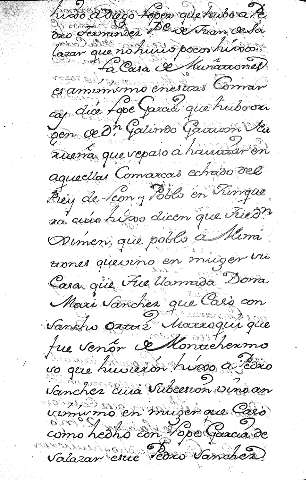 hixos a Diego Lopez que hubo a Pe
dro Fernandez De de Juan de Sa
lazar que no hubo pocos hixos
La Casa de Muñatones
es asimismo en estas Comar
cas, dice Lope Garcia que hubo ori
gen de Dn Galindo
que se paso a havitar en
aquellas Comarcas echado del
Rey de Leon y Poblo en
ra cuio hixo dicen que fue Dn
Ximen, que poblo a Muña
tones que vino en muger su
Casa que fue llamada Doña
Mari Sanchez que Caso con
Sancho Ortiz Marroquin que
fue Señor de Montehermo
so que huvieron hixo a Pedro
Sanchez cuia subcesion vino an
simismo en muger que Caso
como hedho con Lope Garcia de
Salazar este Pedro Sanchez